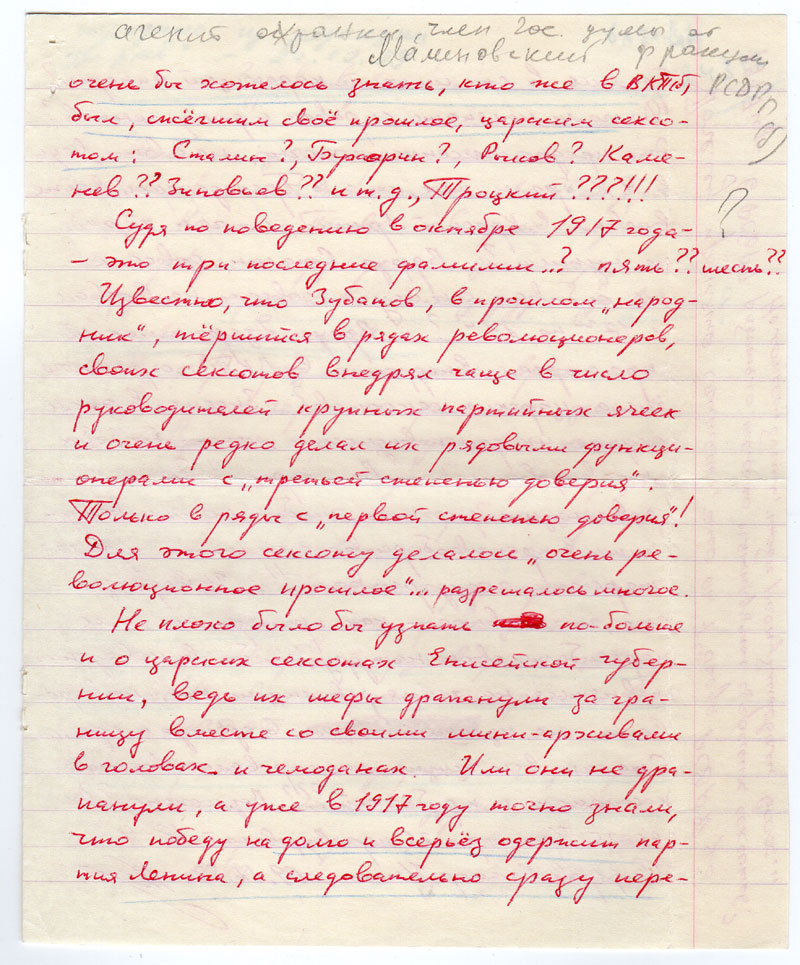 агент охранки, член Гос. думы от
Малиновский фракции
РСДРП(б)
очень бы хотелось знать, кто же в ВКП(б)
был, сжёгшим своё прошлое, царским сексо-
том: Сталин?, Бухарин?, Рыков? Каме-
нев?? Зиновьев?? и т.д., Троцкий???!!!
?
Судя по поведению в октябре 1917 года-
- это три последние фамилии...? пять?? шесть??
Известно, что Зубатов, в прошлом „народ-
ник“, тёршийся в рядах революционеров,
своих сексотов внедрял чаще в число
руководителей крупных партийных ячеек
и очень редко делал их рядовыми функци-
онерами с „третьей степенью доверия“.
Только в ряды с „первой степенью доверия“!
Для этого сексоту делалось „очень ре-
волюционное прошлое“... разрешалось многое.
Не плохо было бы узнать по-больше
и о царских сексотах Енисейской губер-
нии, ведь их шефы драпанули за гра-
ницу вместе со своими мини-архивами
в головах и чемоданах. Или они не дра-
панули, а уже в 1917 году точно знали,
что победу на долго и всерьёз одержит пар-
тия Ленина, а следовательно сразу пере-